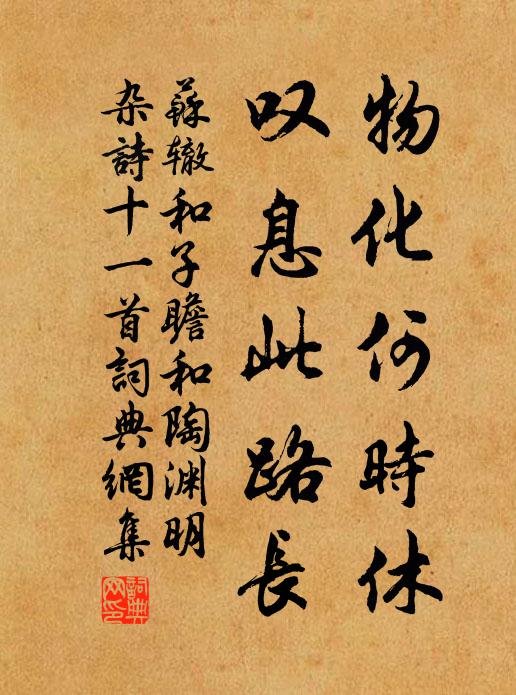 物化何時休
叹息此路長
蘇辙和子瞻和陶渊明
杂詩十一首詞典網集
詞典网印